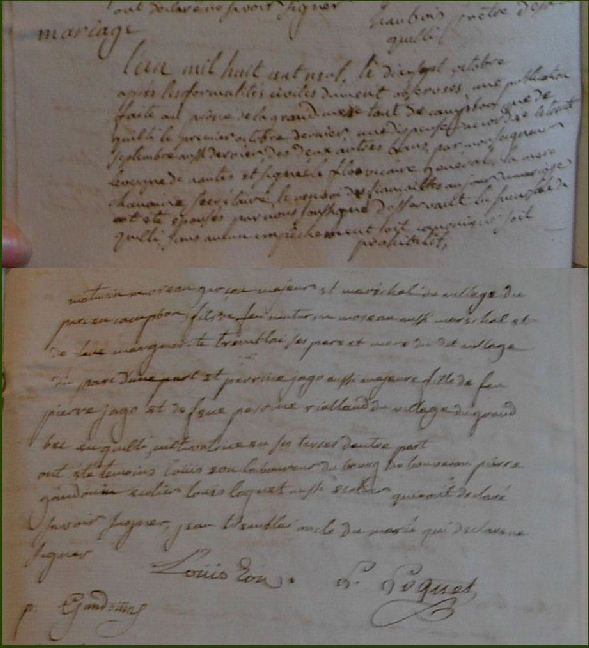 ont déclaré ne savoir signer
Gaubois prêtre dess
quilli
mariage
L'an mil huit cent neuf, le dix sept octobre
après les formalités civiles dument observées, une publication
faite au prône de la grand messe tant de campbon que de
quilli le premier octobre dernier, une dispense accordée le trente
septembre aussi dernier, des deux autres bans, par monseigneur
levesque de nantes et signée vicaire general, la mere
chanoine secrétaire, le renvoi des fiançailles au jour du mariage
ont été épousés par nous soussigné desservant la succursale de
quilli, sans aucun empêchement soit canonique soit
prohibitif,
maturin moreau garçon majeur et maréchal du village du
parc en campbon fils de feu maturin moreau aussi maréchal et
de feue margueritte tremblai ses pere et mere du dit village
du parc d'une part et perrine jago aussi majeure fille de feu
pierre jago et de feue perrine riallaud du village du grand
bec en quilli, cultivatrice en ses terres d'autre part
ont été temoins louis eon laboureur du bourg de bouveron pierre
gaudouin sellier louis loquet aussi sellier qui ont déclaré
savoir signer, jean tremblai oncle du marié qui déclare ne
signer
Louis Eon. L. Loquet
p. Gaudouin